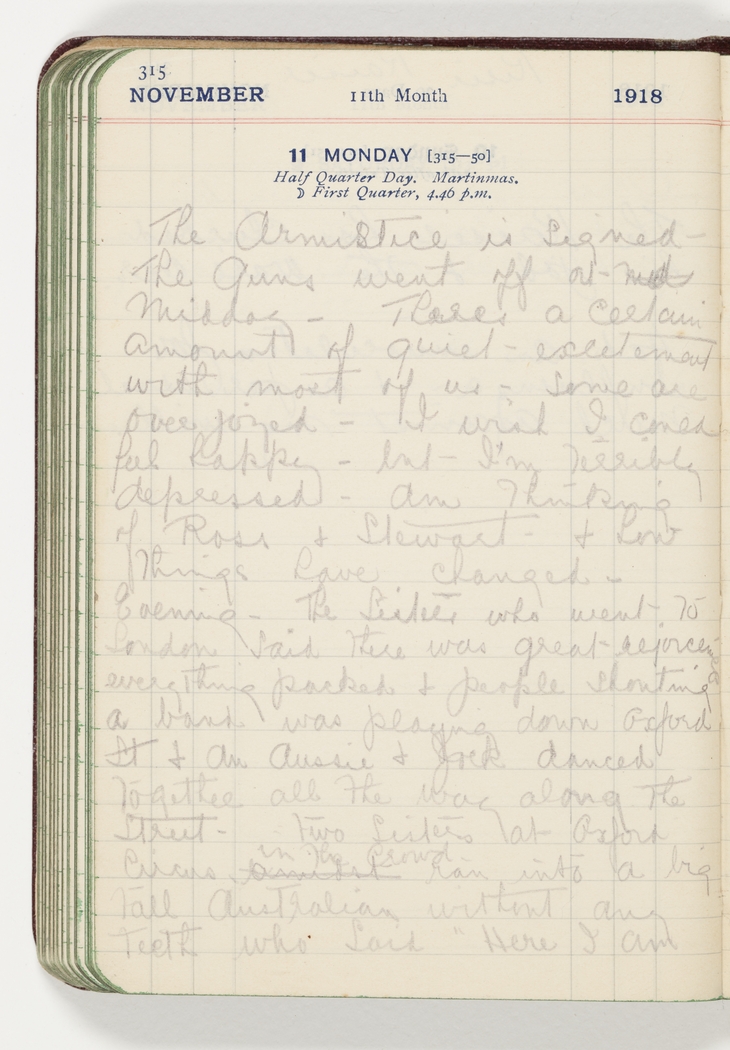 315
NOVEMBER 11th Month 1918
11 MONDAY [315—50]
Half Quarter Day. Martinmas.
☽ First Quarter, 4.46 p.m.
The Armistice is signed -
The Guns went off at mid
Midday - There's a certain
amount of quiet - excitement
with most of us - some are
over joyed - I wish I could
feel happy - but - I'm Terribly
depressed - am Thinking
of Ross & Stewart - & how
Things have changed -
Evening - The Sisters who went To
London said There was great rejoicing
everything packed & people shouting
a band was playing down Oxford
St & an Aussie & Jock danced
Together all The way along The
Street - Two Sisters at Oxford
Circus amidst in The Crowd ran into a big
Tall Australian without any
Teeth who said "Here I am